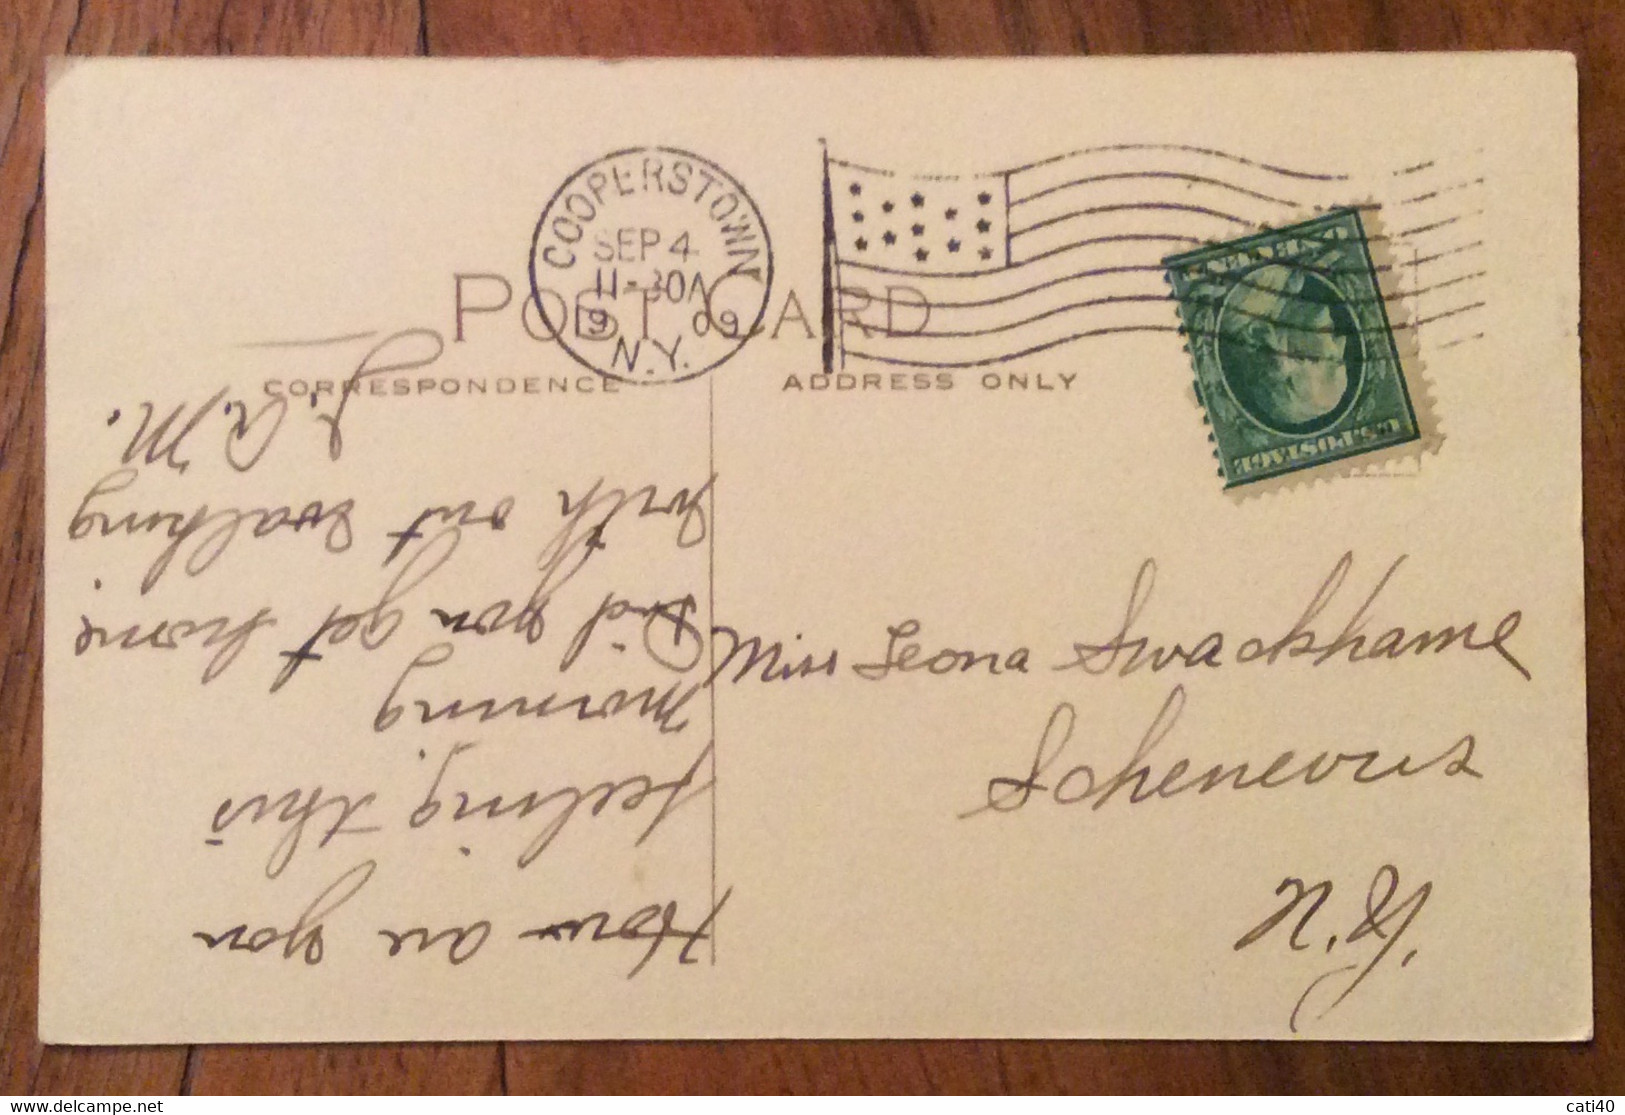 COOPERSTOWN
SEP 4
11-30A
9 09
N.Y.
POST CARD
CORRESPONDENCE
ADDRESS ONLY
U.S.POSTAGE
ONE CENT
Miss Leona Swackhame
Schenevus
N.Y.
How are you
feeling this
morning
Did you get home
with out walking
J.A.M.
cati40